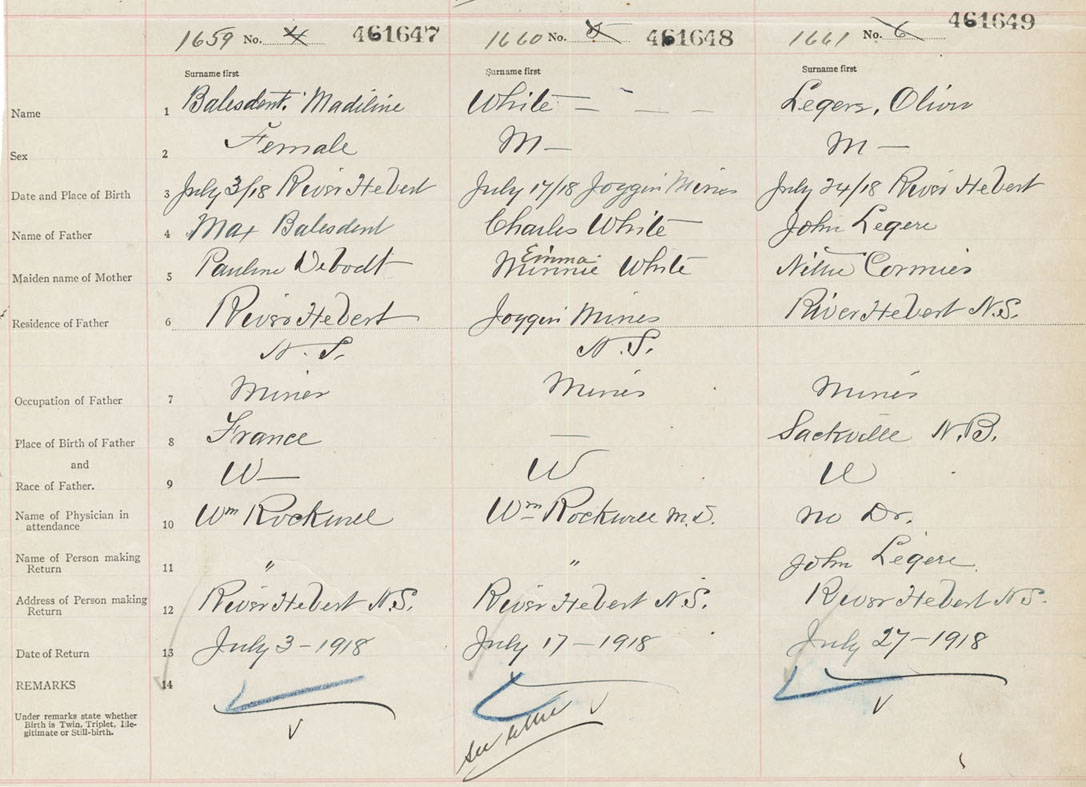 1659 No. 4 461647 1660 No. 5 461648 1661 No. 6 461649
Surname first Surname first Surname first
Name 1 Balesdent, Madiline White — — — Legere, Oliver
Sex 2 Female M — M —
Date and Place of Birth 3 July 3/18 River Hebert July 17/18 Joggin Mines July 24/18 River Hebert
Name of Father 4 Max Balesdent Charles White John Legere
Emma
Maiden name of Mother 5 Pauline Debodt Minnie White Nettie Cormier
Residence of Father 6 River Hebert Joggin Mines River Hebert N.S.
N.S. N.S.
Occupation of Father 7 Miner Miner Miner
Place of Birth of Father 8 France — Sackville N.B.
and
Race of Father. 9 W— W W
Name of Physician in
attendance 10 Wm Rockwell Wm Rockwell M.D. no Dr.
Name of Person making
Return 11 " " John Legere
Address of Person making
Return 12 River Hebert N.S. River Hebert N.S. River Hebert N.S.
Date of Return 13 July 3-1918 July 17-1918 July 27-1918
REMARKS 14
Under remarks state whether
Birth is Twin, Triplet, Ille-
gitimate or Still-birth.
see